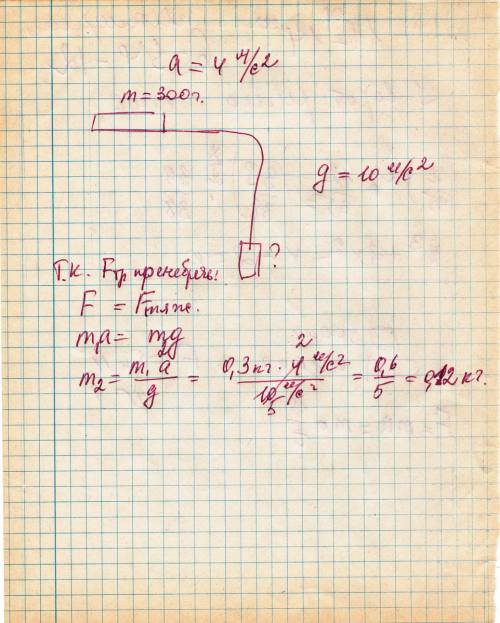 a = 4 м/с2
m = 300г.
g = 10 м/с2
?
Т.К. Fтр пренебречь:
F = Fтяж.
m₁a = m₂g
m₂ = m₁a/g = 0,3кг · 4 м/с²/10 м/с² = 0,6/5 = 0,12 кг.
2
5